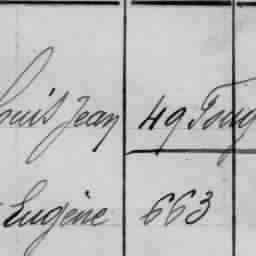 Louis Jean 49 Toug
Eugène 663